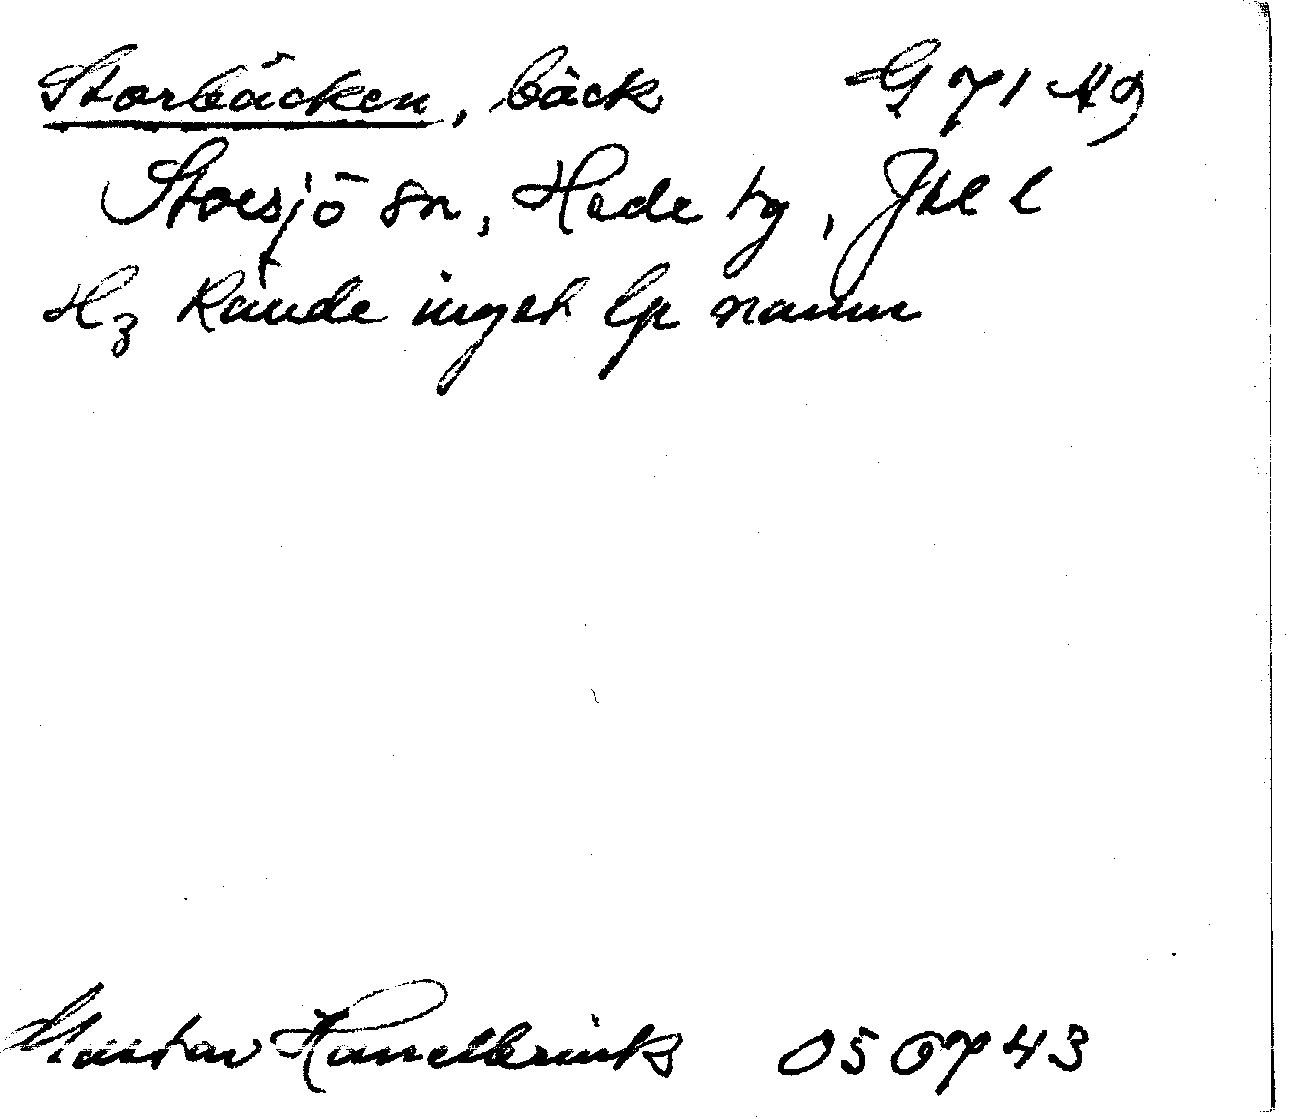 Storbäcken, bäck G 71 Ag
Storsjö sn, Hede tg, Jtl l
Hz kände inget lp namn
Gustav Hasselbrink 050743